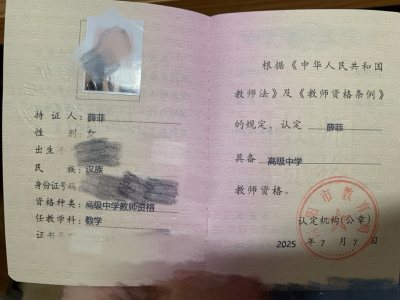 持 证 人：薛菲
性 别：女
出生
民 族：汉族
身份证号码
资格种类：高级中学教师资格
任教学科：数学
证书号
根据《中华人民共和国
教师法》及《教师资格条例》
的规定，认定 薛菲
具备 高级中学
教师资格。
市教育局
认定机构(公章)
2025 年 7 月 7 日